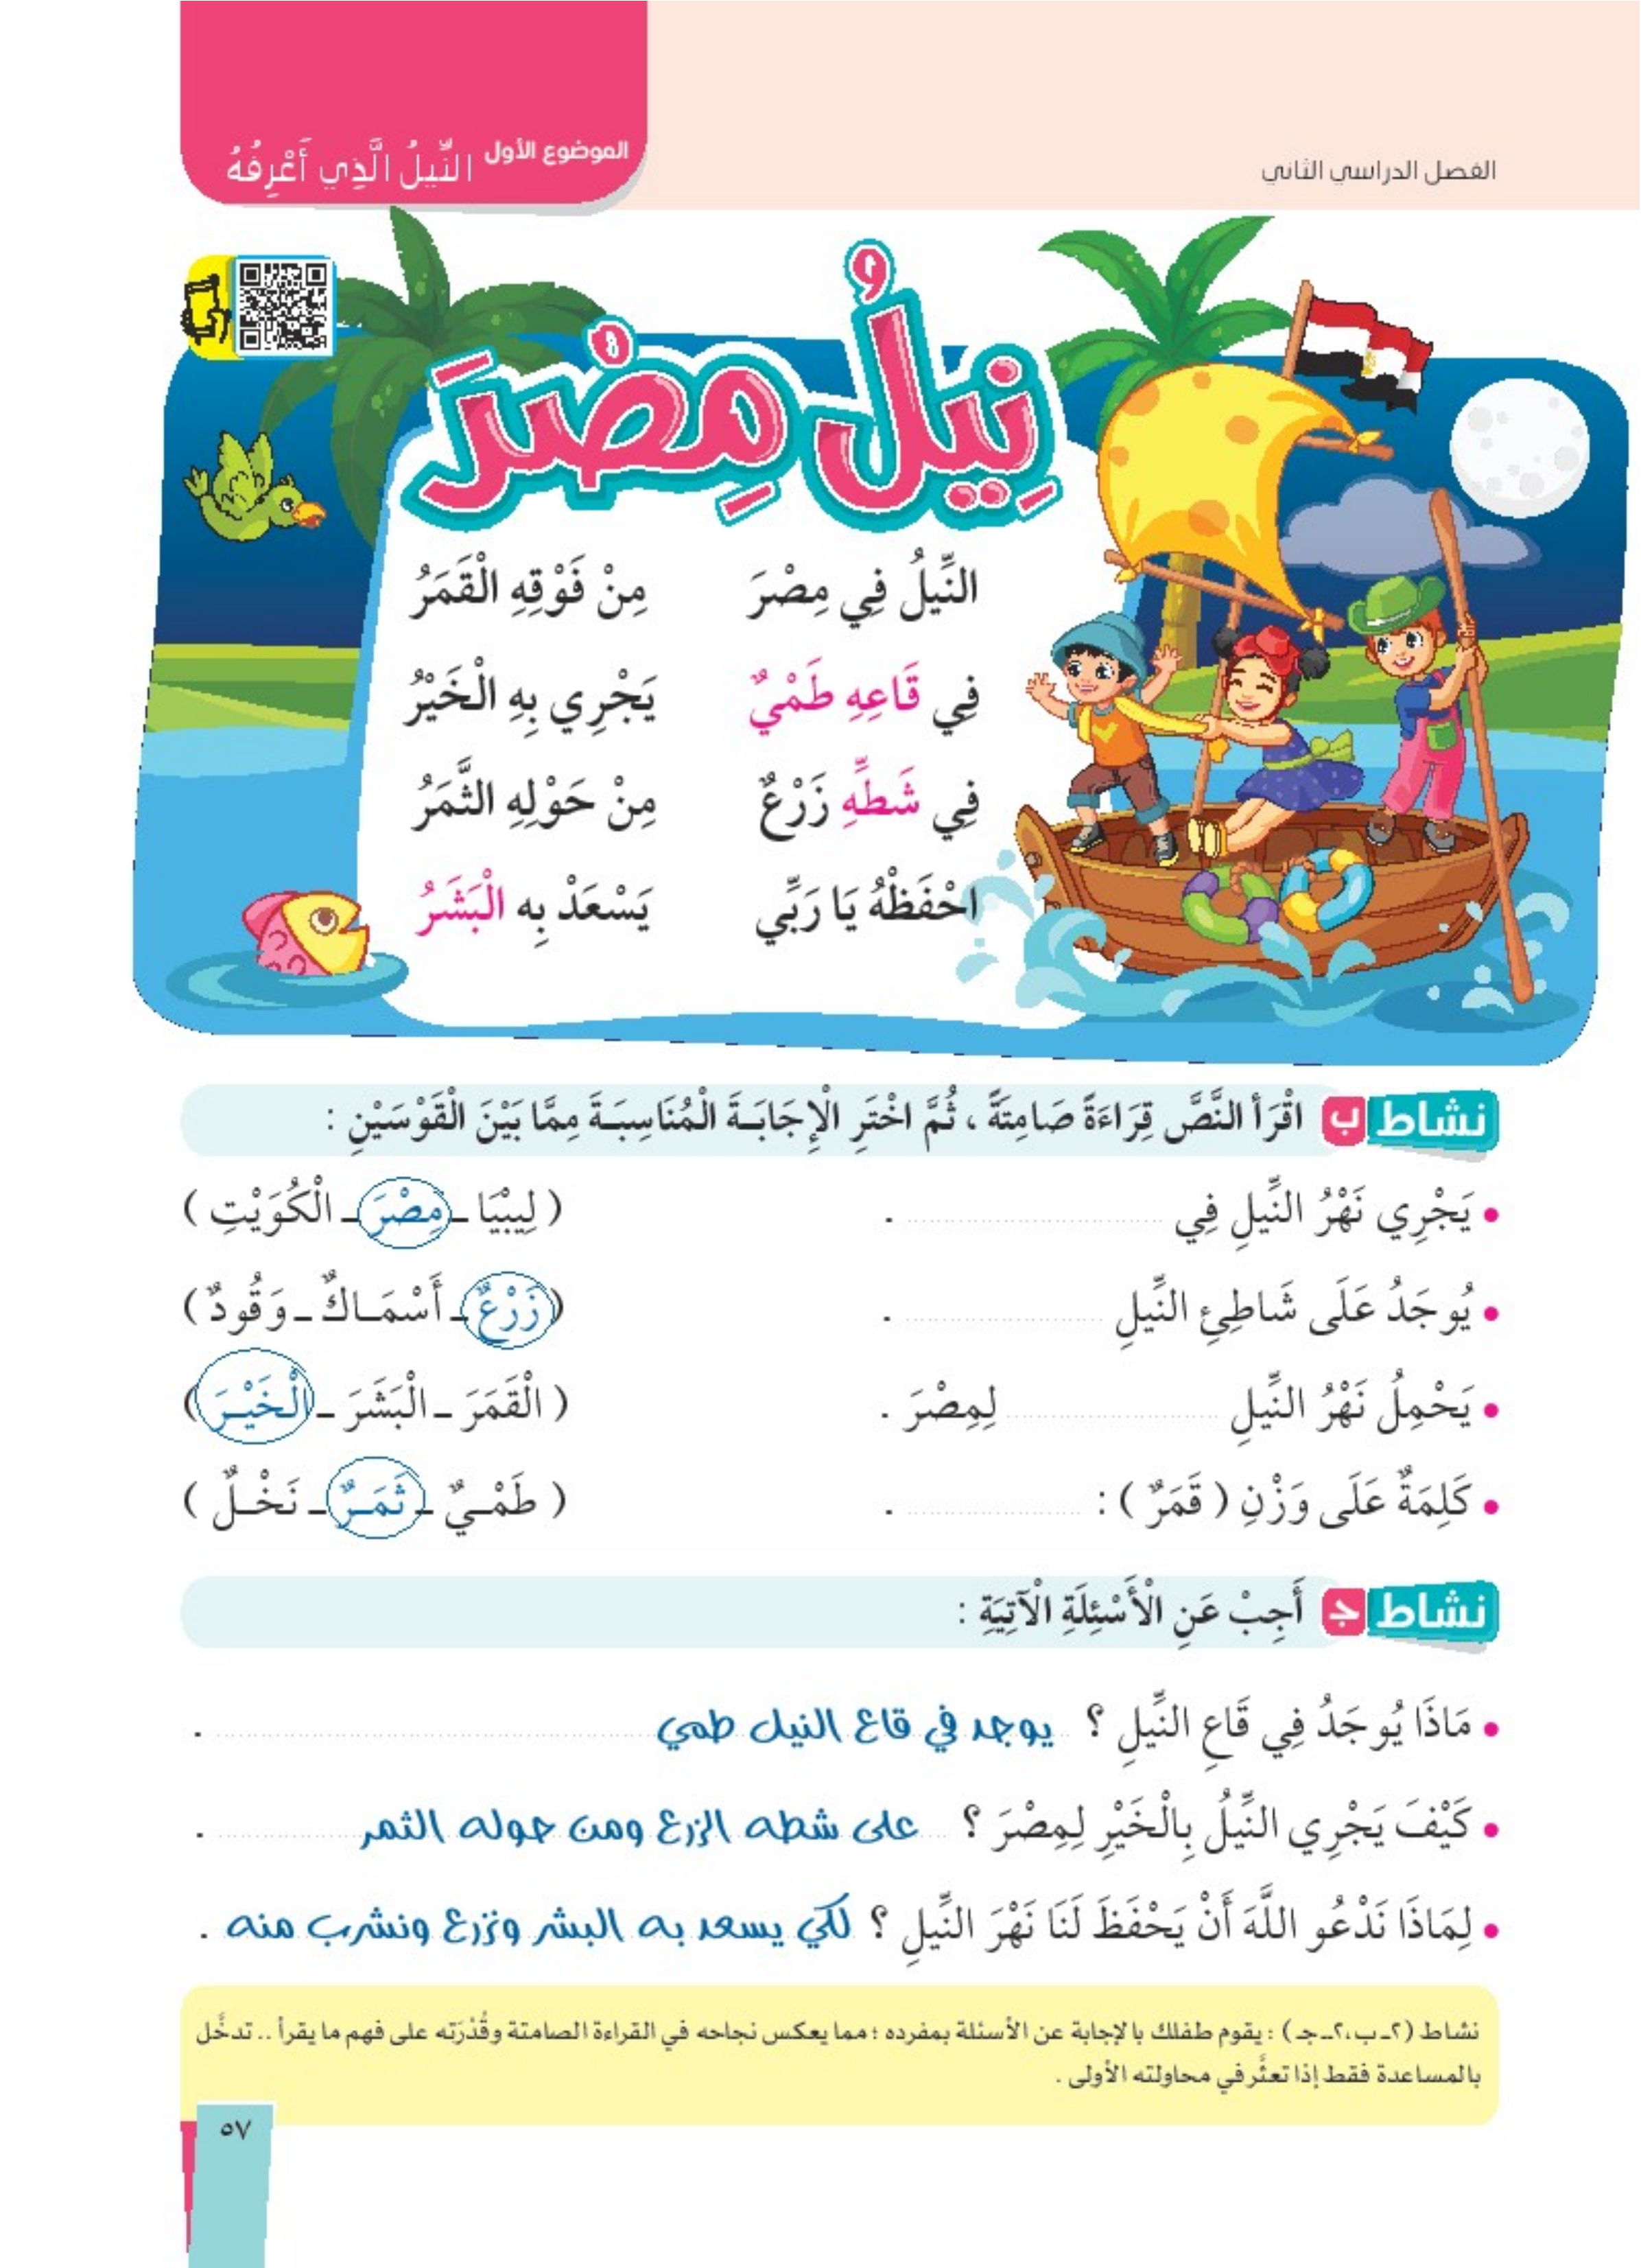 الفصل الدراسي الثاني
الموضوع الأول النِّيلُ الَّذِي أَعْرِفُهُ
نِيلُ مِصْرَ
النِّيلُ فِي مِصْرَ مِنْ فَوْقِهِ الْقَمَرُ
فِي قَاعِهِ طَمْيٌ يَجْرِي بِهِ الْخَيْرُ
فِي شَطِّهِ زَرْعٌ مِنْ حَوْلِهِ الثَّمَرُ
احْفَظْهُ يَا رَبِّي يَسْعَدْ بِه الْبَشَرُ
نشاط ب اقْرَأ النَّصَّ قِرَاءَةً صَامِتَةً ، ثُمَّ اخْتَرِ الْإِجَابَـةَ الْمُنَاسِبَـةَ مِمَّا بَيْنَ الْقَوْسَيْنِ :
• يَجْرِي نَهْرُ النِّيلِ فِي .................... . ( لِيبْيَا ـ مِصْرَ ـ الْكُوَيْتِ )
• يُوجَدُ عَلَى شَاطِئِ النِّيلِ .................... . (زَرْعٌ ـ أَسْمَـاكٌ ـ وَقُودٌ )
• يَحْمِلُ نَهْرُ النِّيلِ .................... لِمِصْرَ . ( الْقَمَرَ ـ الْبَشَرَ ـ الْخَيْـرَ )
• كَلِمَةٌ عَلَى وَزْنِ ( قَمَرٌ ) : .................... . ( طَمْـيٌ ـ ثَمَـرٌ ـ نَخْـلٌ )
نشاط جـ أَجِبْ عَنِ الْأَسْئِلَةِ الْآتِيَةِ :
• مَاذَا يُوجَدُ فِي قَاعِ النِّيلِ ؟ يوجد في قاع النيل طمي .
• كَيْفَ يَجْرِي النِّيلُ بِالْخَيْرِ لِمِصْرَ ؟ على شطه الزرع ومن حوله الثمر .
• لِمَاذَا نَدْعُو اللَّهَ أَنْ يَحْفَظَ لَنَا نَهْرَ النِّيلِ ؟ لكي يسعد به البشر ونزرع ونشرب منه .
نشاط (٢ـ ب،٢ـ جـ ) : يقوم طفلك بالإجابة عن الأسئلة بمفرده ؛ مما يعكس نجاحه في القراءة الصامتة وقُدْرَته على فهم ما يقرأ .. تدخَّل
بالمساعدة فقط إذا تعثَّر في محاولته الأولى .
٥٧